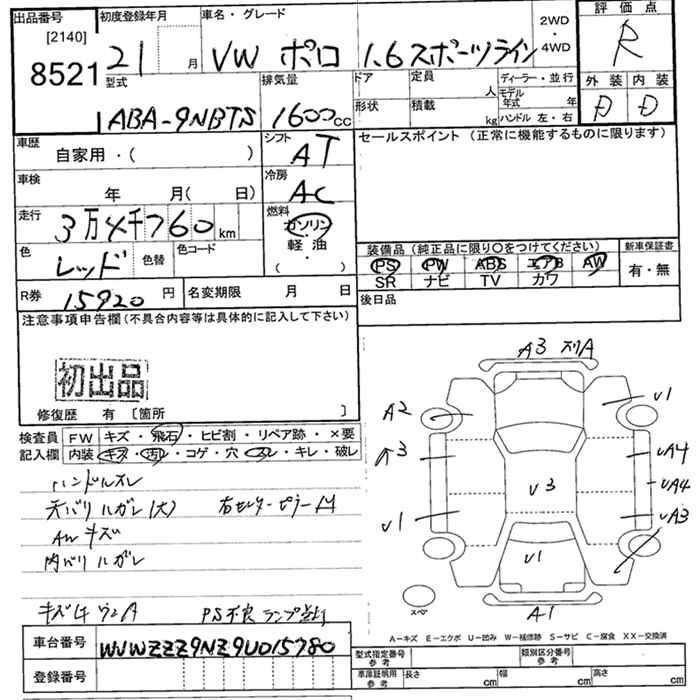 出品番号 初度登録年月 車名・グレード 2WD 評価点
[2140] 21 月 VW ポロ 1.6スポーツライン ・4WD R
8521 型式 排気量 ドア 定員 ディーラー・並行 外装 内装
ABA-9NBTS 1600cc 人 モデル年式 年 D D
形状 積載 kg ハンドル 左・右
車歴 シフト セールスポイント(正常に機能するものに限ります)
自家用・( ) AT
車検 冷房
年 月( 日) AC
走行 燃料
3万4千760km ガソリン
色 色替 色コード 軽・油 装備品(純正品に限り○をつけてください) 新車保証書
レッド ( ) PS PW ABS エアB AW 有・無
SR ナビ TV カワ
R券 15920円 名変期限 月 日 後日品
注意事項申告欄(不具合内容等は具体的に記入して下さい)
初出品
修復歴 有 [箇所 ]
検査員 FW キズ・飛石・ヒビ割・リペア跡・×要
記入欄 内装 キズ・汚レ・コゲ・穴・スレ・キレ・破レ
ハンドルスレ
天バリハガレ(大)
AWキズ
内バリハガレ
PS不良 ランプ点灯
車台番号 WVWZZZ9NZ9U015780
登録番号
A3 スリA
A2 V1
A3 UA4
V3 UA4
V1 UA3
V1
スペア A1
A-キズ E-エクボ U-凹み W-補修跡 S-サビ C-腐食 XX-交換済
型式指定番号 参考 類別区分番号 参考
車庫証明用 参考 長さ cm 幅 cm 高さ cm